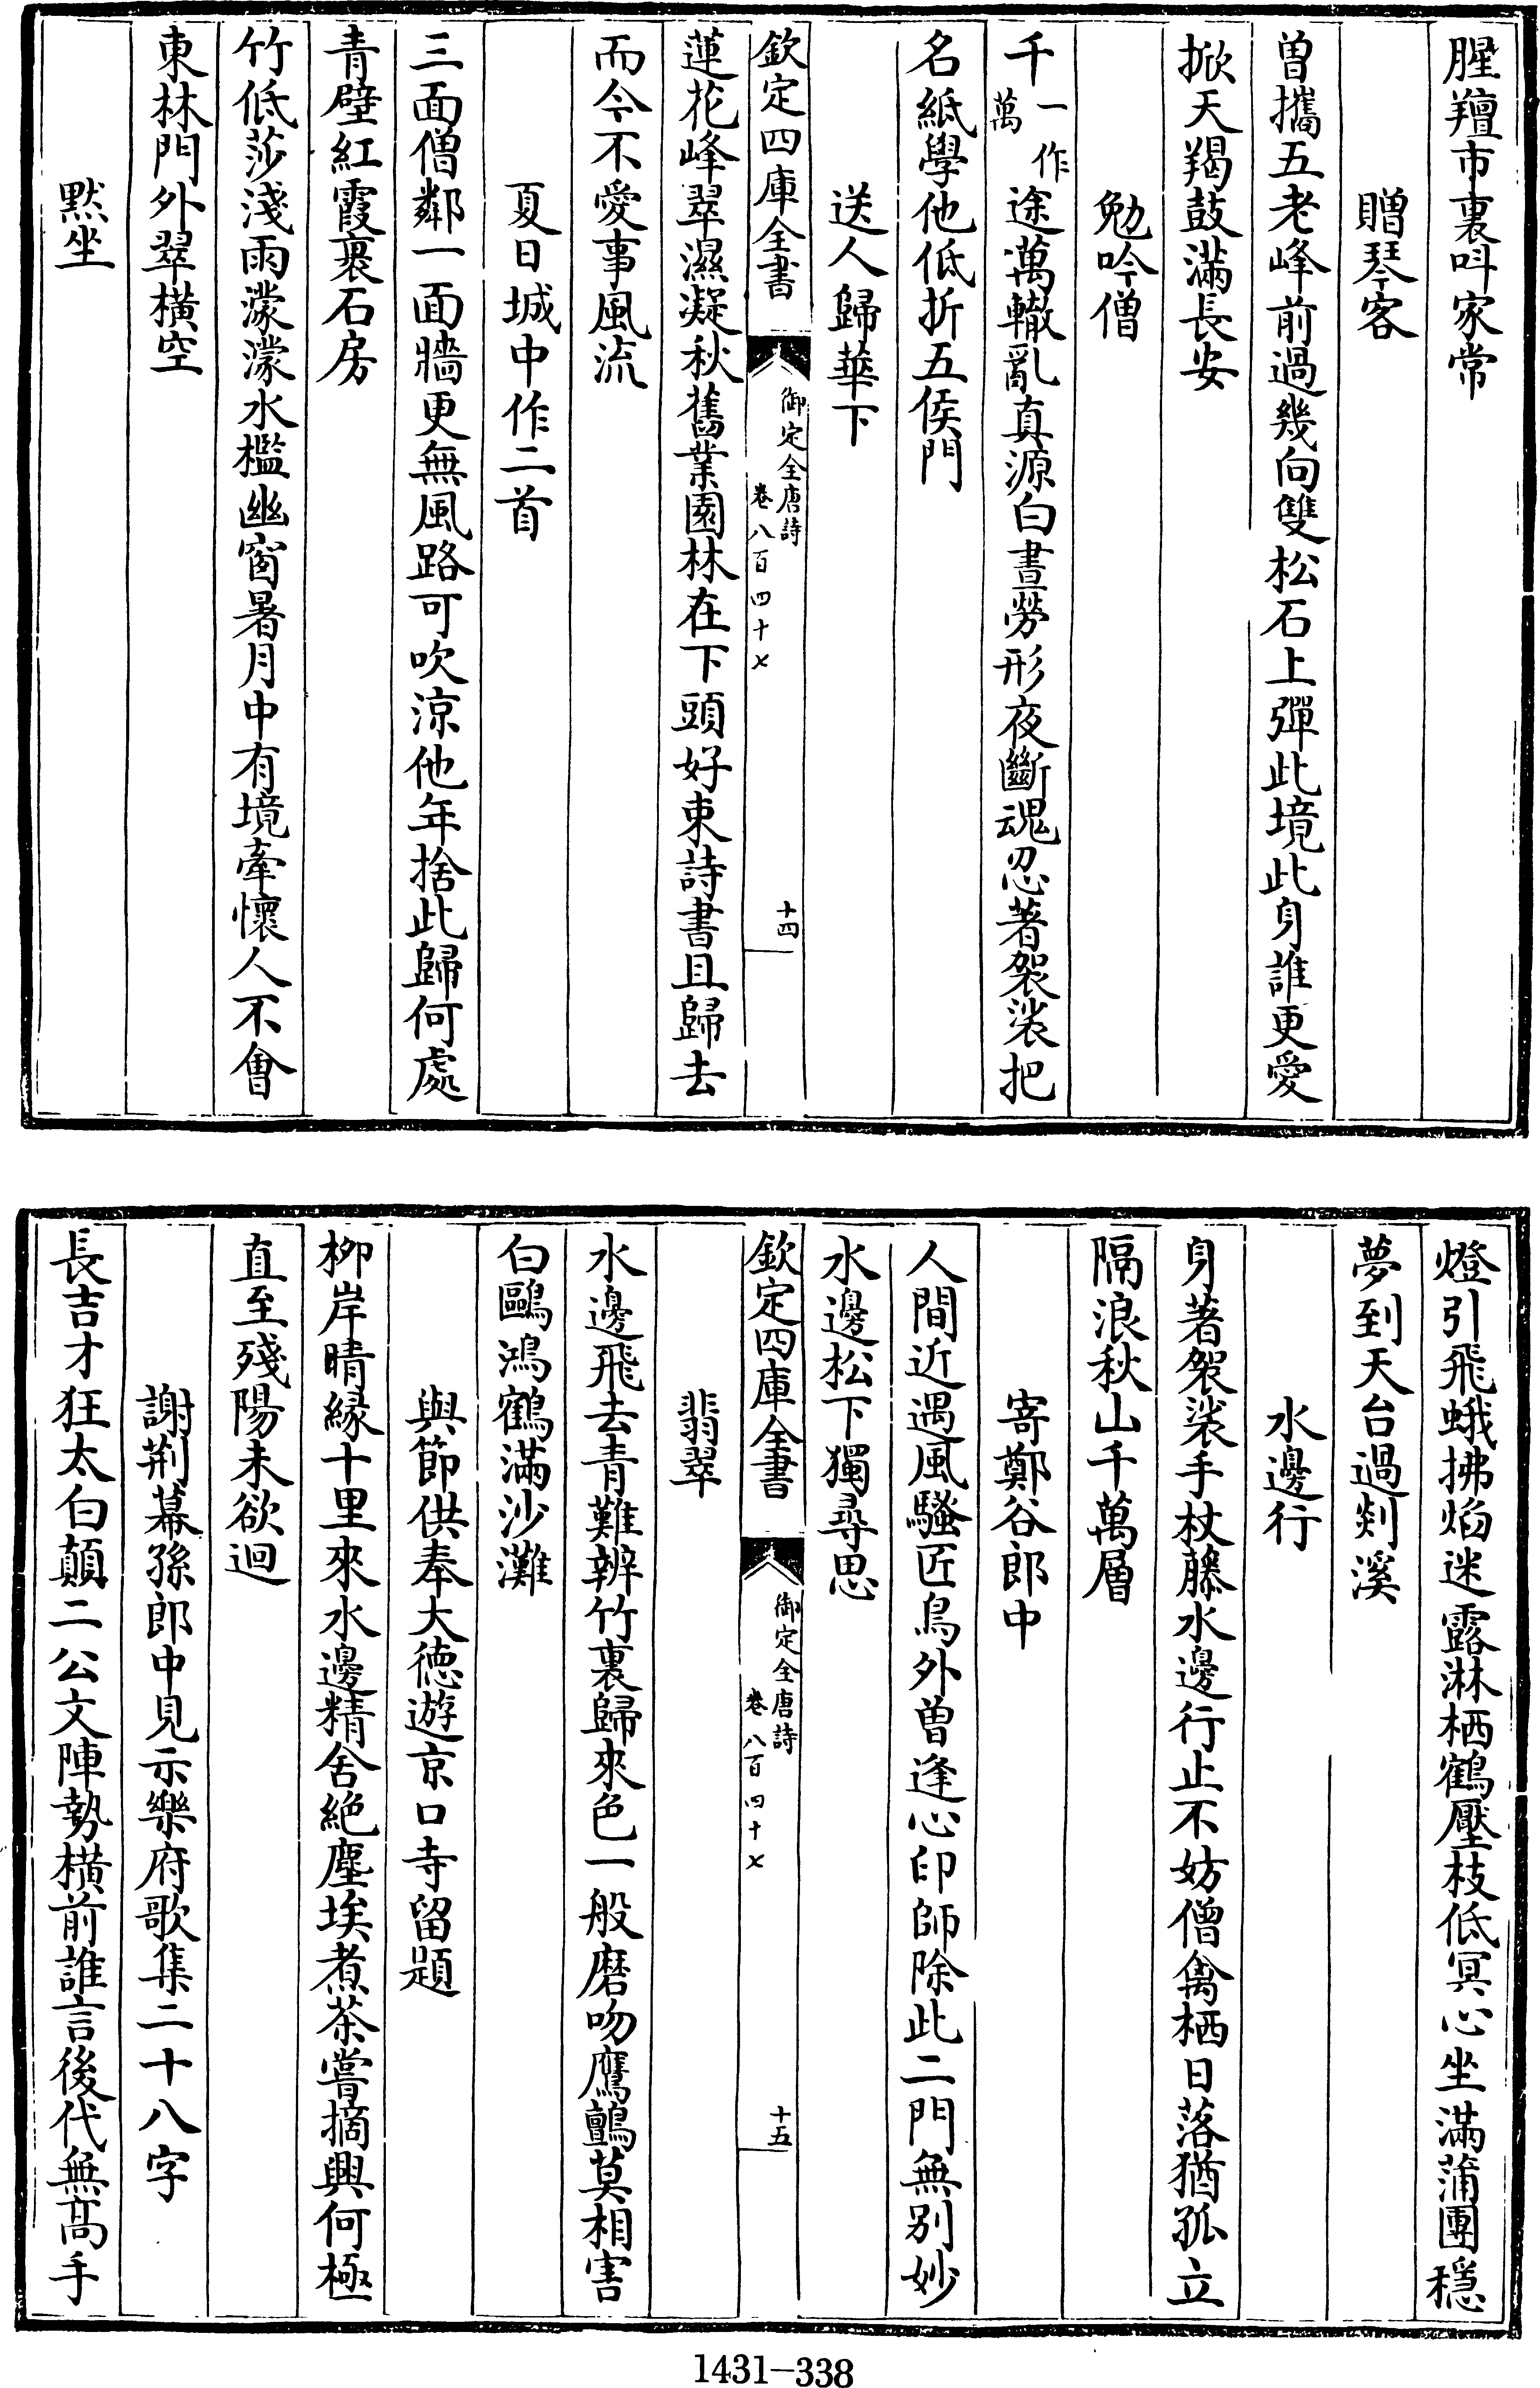 腥羶市裏呌家常
贈琴客
曽攜五老峰前過幾向雙松石上彈此境此身誰更愛
掀天羯鼓滿長安
勉吟僧
千一作萬途萬轍亂真源白晝勞形夜斷魂忍著袈裟把
名紙學他低折五侯門
送人歸華下
欽定四庫全書
御定全唐詩
卷八百四十七
十四
蓮花峰翠濕凝秋舊業園林在下頭好束詩書且歸去
而今不愛事風流
夏日城中作二首
三面僧鄰一面牆更無風路可吹涼他年捨此歸何處
青壁紅霞裹石房
竹低莎淺雨濛濛水檻幽窗暑月中有境牽懷人不會
東林門外翠橫空
默坐
燈引飛蛾拂焰迷露淋栖鶴壓枝低冥心坐滿蒲團穩
夢到天台過剡溪
水邊行
身著袈裟手杖藤水邊行止不妨僧禽栖日落猶孤立
隔浪秋山千萬層
寄鄭谷郎中
人間近遇風騷匠鳥外曽逢心印師除此二門無别妙
水邊松下獨尋思
欽定四庫全書
御定全唐詩
卷八百四十七
十五
翡翠
水邊飛去青難辨竹裏歸來色一般磨吻鷹鸇莫相害
白鷗鴻鶴滿沙灘
與節供奉大徳遊京口寺留題
栁岸晴緣十里來水邊精舍絶塵埃煮茶嘗摘興何極
直至殘陽未欲迴
謝荆幕孫郎中見示樂府歌集二十八字
長吉才狂太白顛二公文陣勢横前誰言後代無髙手
1431-338